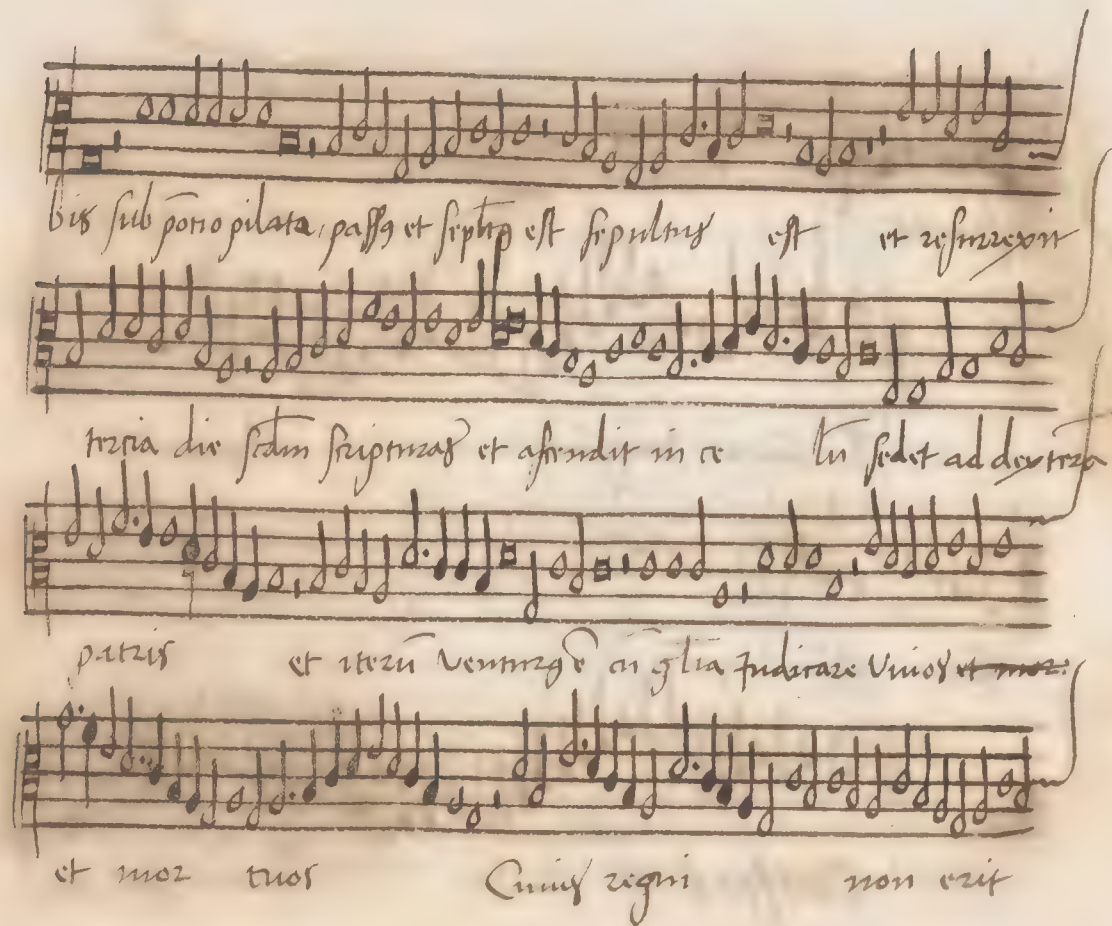 bis sub põtio pilata, passꝯ et sepl̄tꝯ est sepultus est et resurrexit
tercia die scd̄m scripturas et ascendit in ce lū sedet ad dextera
patris et iterū venturꝯ ē cū gl̄ia Iudicare Vivos et mor
et mor tuos Cuius regni non erit